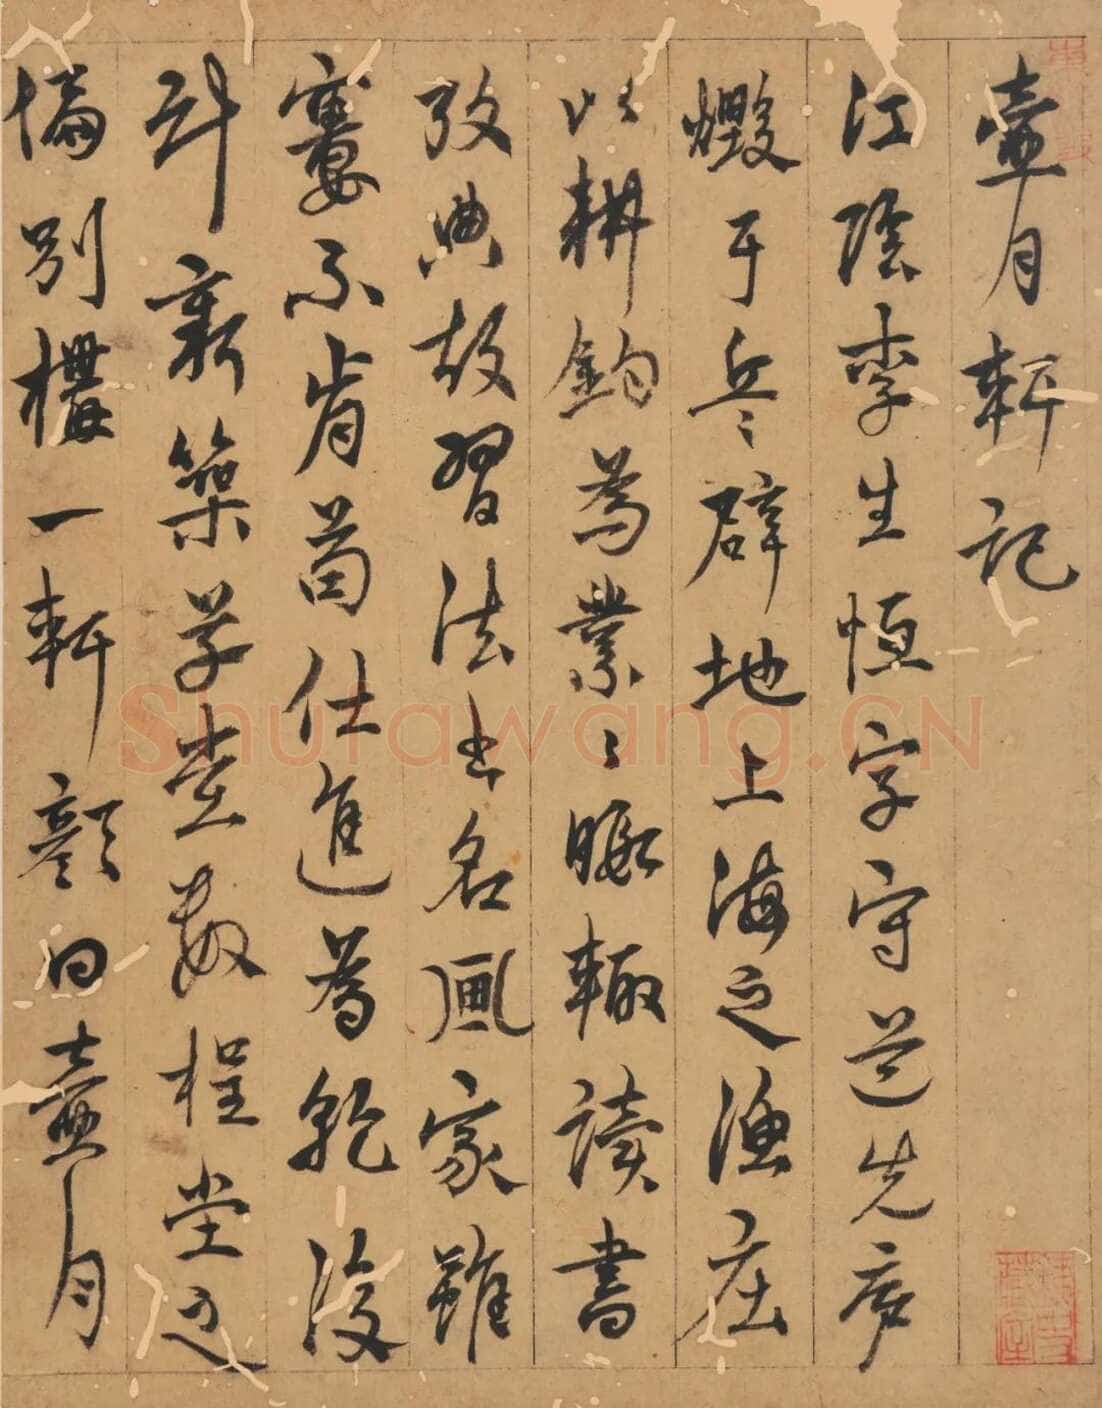 壺月軒記
江陰李生恒字守道先廬
燬于兵辟地上海之漁庄
以耕釣為業〻暇輒讀書
攷典故習法書名畫家雖
窶不肯苟仕進為乾沒
計新築草堂數楹堂之
偏別構一軒顏曰壺月
Shufawang.CN